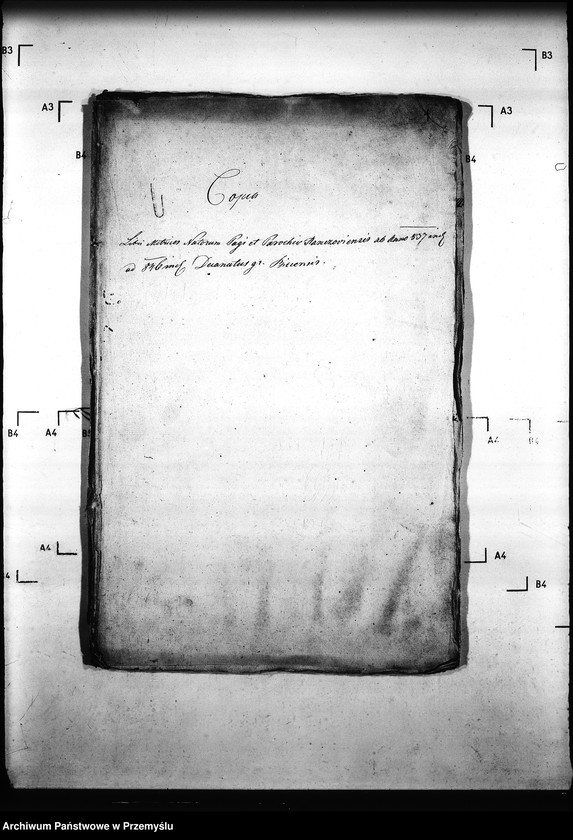 B3
B3
A3
A3
B4
B4
Copia
Libri Metrices Natorum Pagi et Parochiae Banczoviensis ab Anno 837 incl
ad 846 incl Decanatus gr. Bircensis.
B4
A4
B5
A4
B4
A4
A4
B4
Archiwum Państwowe w Przemyślu